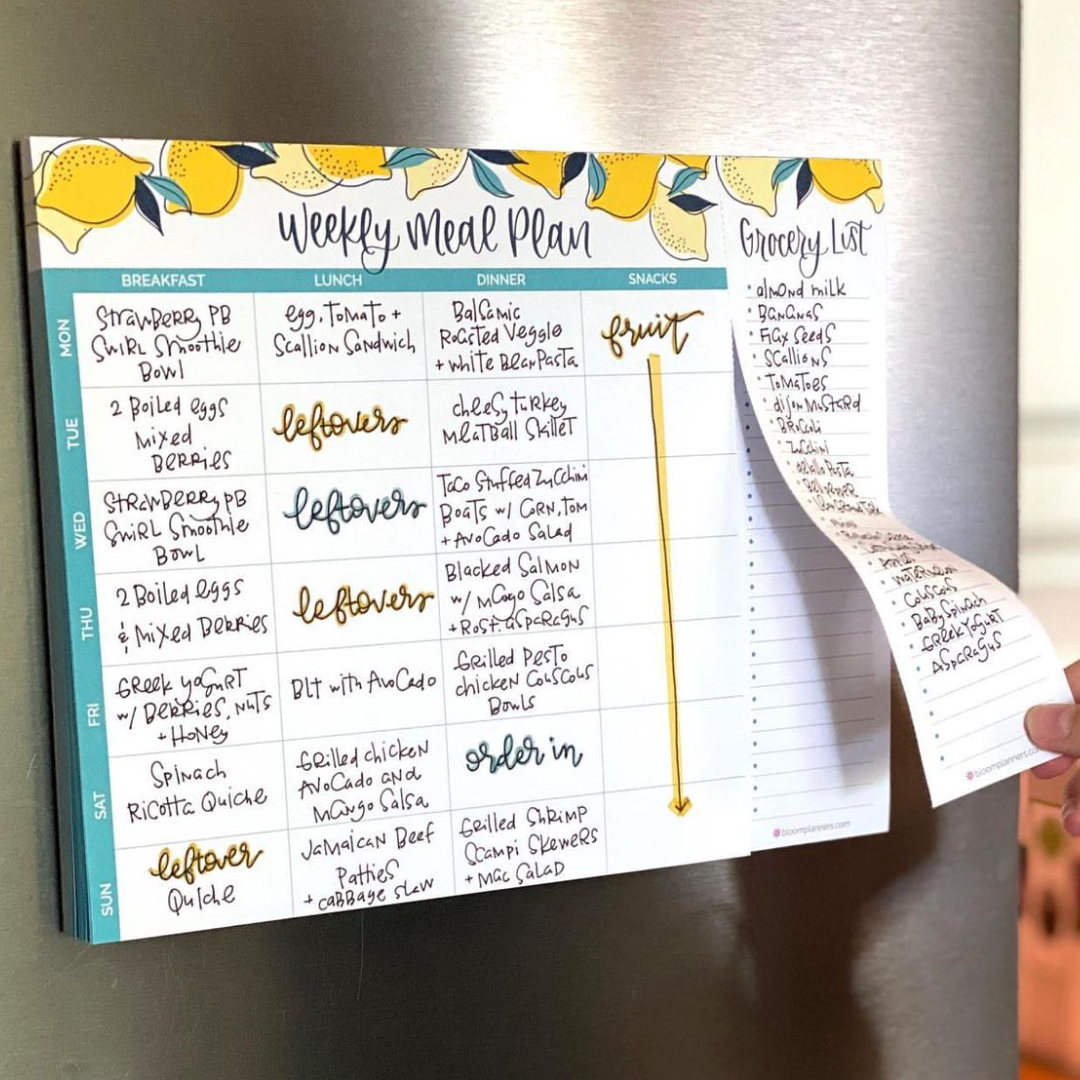 Weekly Meal Plan
BREAKFAST LUNCH DINNER SNACKS
MON
Strawberry PB
Swirl Smoothie
Bowl
egg, Tomato +
Scallion Sandwich
Balsamic
Roasted Veggie
+ White Bean Pasta
fruit
TUE
2 Boiled eggs
Mixed
Berries
leftovers
cheesy turkey
Meatball Skillet
WED
Strawberry PB
Swirl Smoothie
Bowl
leftovers
Taco Stuffed Zucchini
Boats w/ Corn, Tom
+ Avocado Salad
THU
2 Boiled eggs
& Mixed Berries
leftovers
Blacked Salmon
w/ Mango Salsa
+ Rost. asparagus
FRI
Greek yogurt
w/ Berries, Nuts
+ Honey
BLT with Avocado
Grilled Pesto
chicken Couscous
Bowls
SAT
Spinach
Ricotta Quiche
Grilled chicken
Avocado and
Mango Salsa
order in
SUN
leftover
Quiche
Jamaican Beef
Patties
+ cabbage slaw
Grilled Shrimp
Scampi Skewers
+ Mac Salad
Grocery List
almond milk
Bananas
Flax Seeds
Scallions
Tomatoes
dijon Mustard
Zucchini
Pasta
Apple
Watermelon
Couscous
Baby Spinach
Greek Yogurt
Asparagus
bloomplanners.com
bloomplanners.com